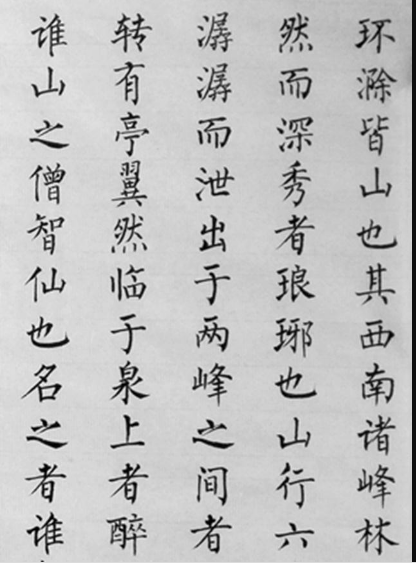 环滁皆山也其西南诸峰林
然而深秀者琅琊也山行六
潺潺而泄出于两峰之间者
转有亭翼然临于泉上者醉
谁山之僧智仙也名之者谁